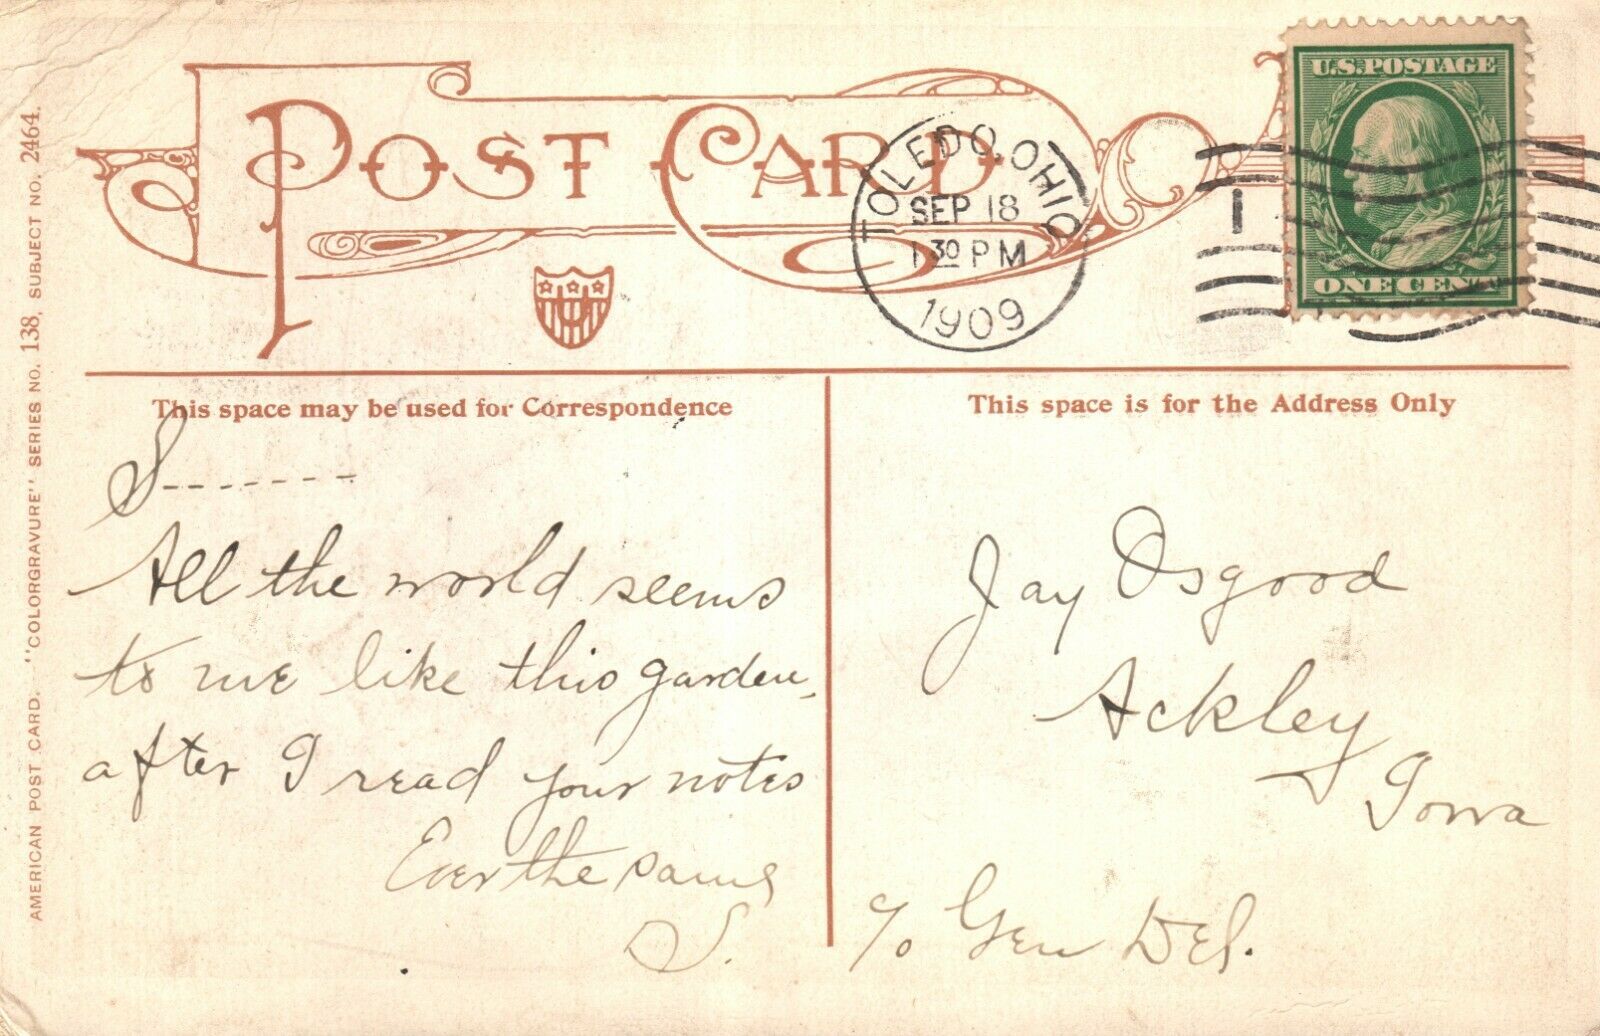 POST CARD
TOLEDO, OHIO
SEP 18
1 30 PM
1909
1
U.S. POSTAGE
ONE CENT
AMERICAN POST CARD. "COLORGRAVURE" SERIES NO. 138, SUBJECT NO. 2464.
This space may be used for Correspondence
S-------
All the world seems
to me like this garden,
after I read your notes
Ever the same
S.
This space is for the Address Only
Jay Osgood
Ackley
Iowa
c/o Gen Del.